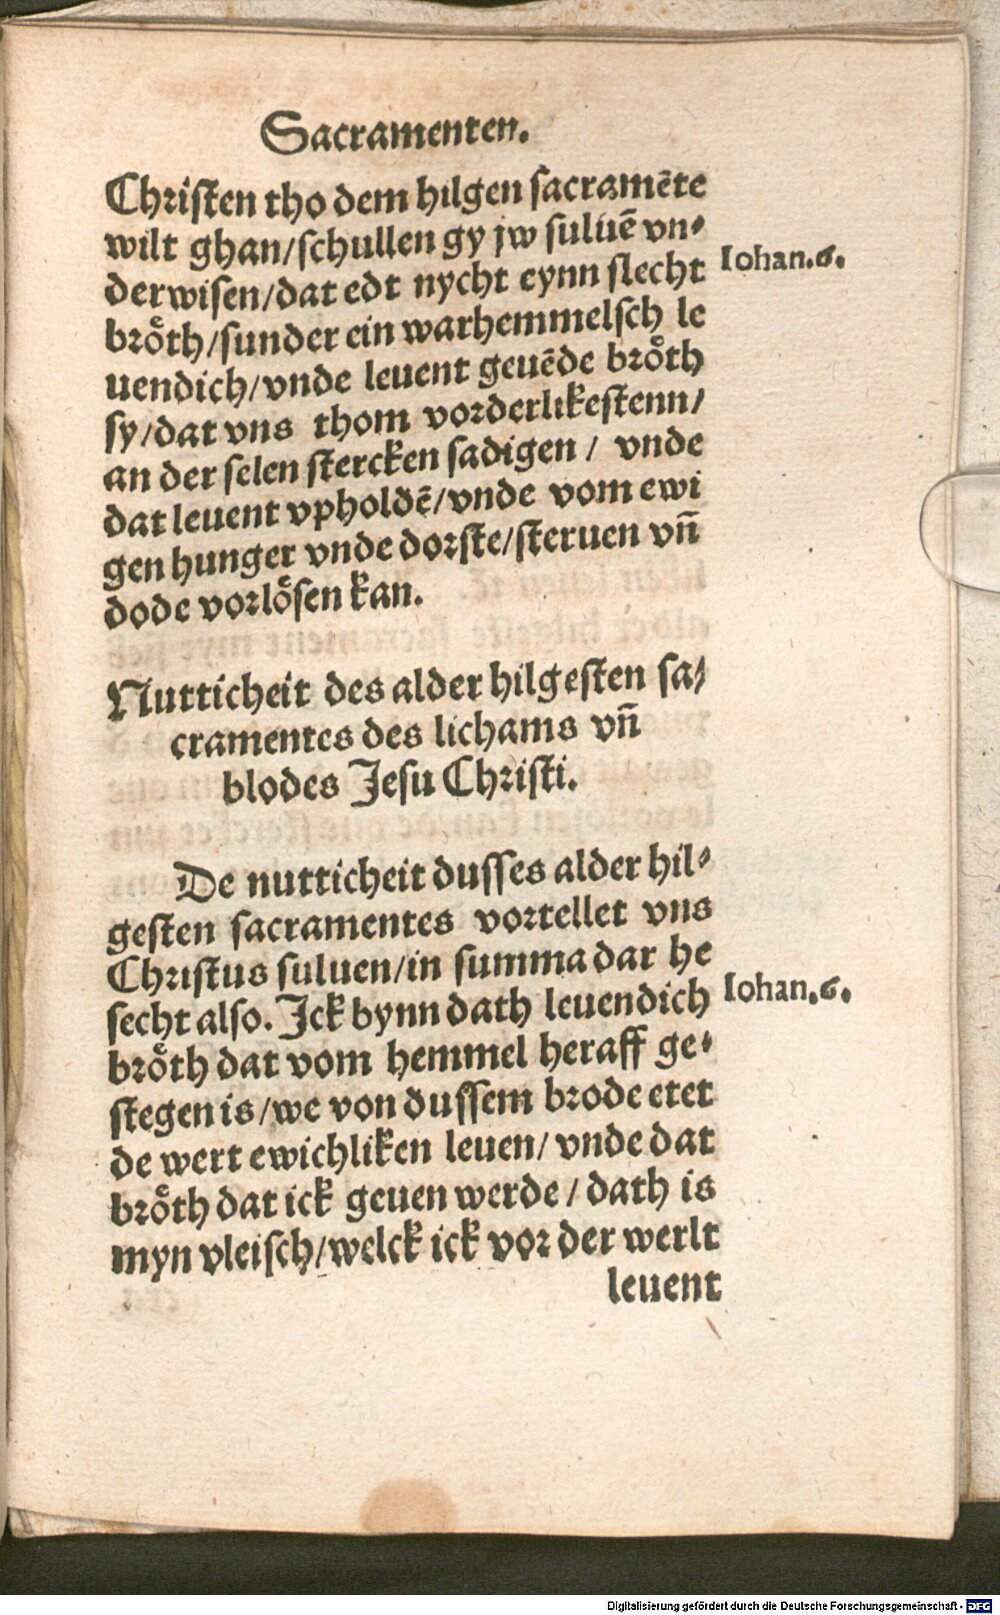 Sacramenten.
Christen tho dem hilgen sacramēte
wilt ghan/schullen gy jw suluē vn⸗
derwisen/dat edt nycht eynn slecht
Iohan.6.
broͤth/sunder ein warhemmelsch le
uendich/vnde leuent geuēde broͤth
sy/dat vns thom vorderlikestenn/
an der selen stercken sadigen / vnde
dat leuent vpholdē/vnde vom ewi
gen hunger vnde dorste/steruen vñ
dode vorloͤsen kan.
Nutticheit des alder hilgesten sa/
cramentes des lichams vñ
blodes Jesu Christi.
De nutticheit dusses alder hil⸗
gesten sacramentes vortellet vns
Christus suluen/in summa dar he
secht also. Jck bynn dath leuendich
Iohan.6.
broͤth dat vom hemmel heraff ge⸗
stegen is/we von dussem brode etet
de wert ewichliken leuen/vnde dat
broͤth dat ick geuen werde / dath is
myn vleisch/welck ick vor der werlt
leuent
Digitalisierung gefördert durch die Deutsche Forschungsgemeinschaft - DFG